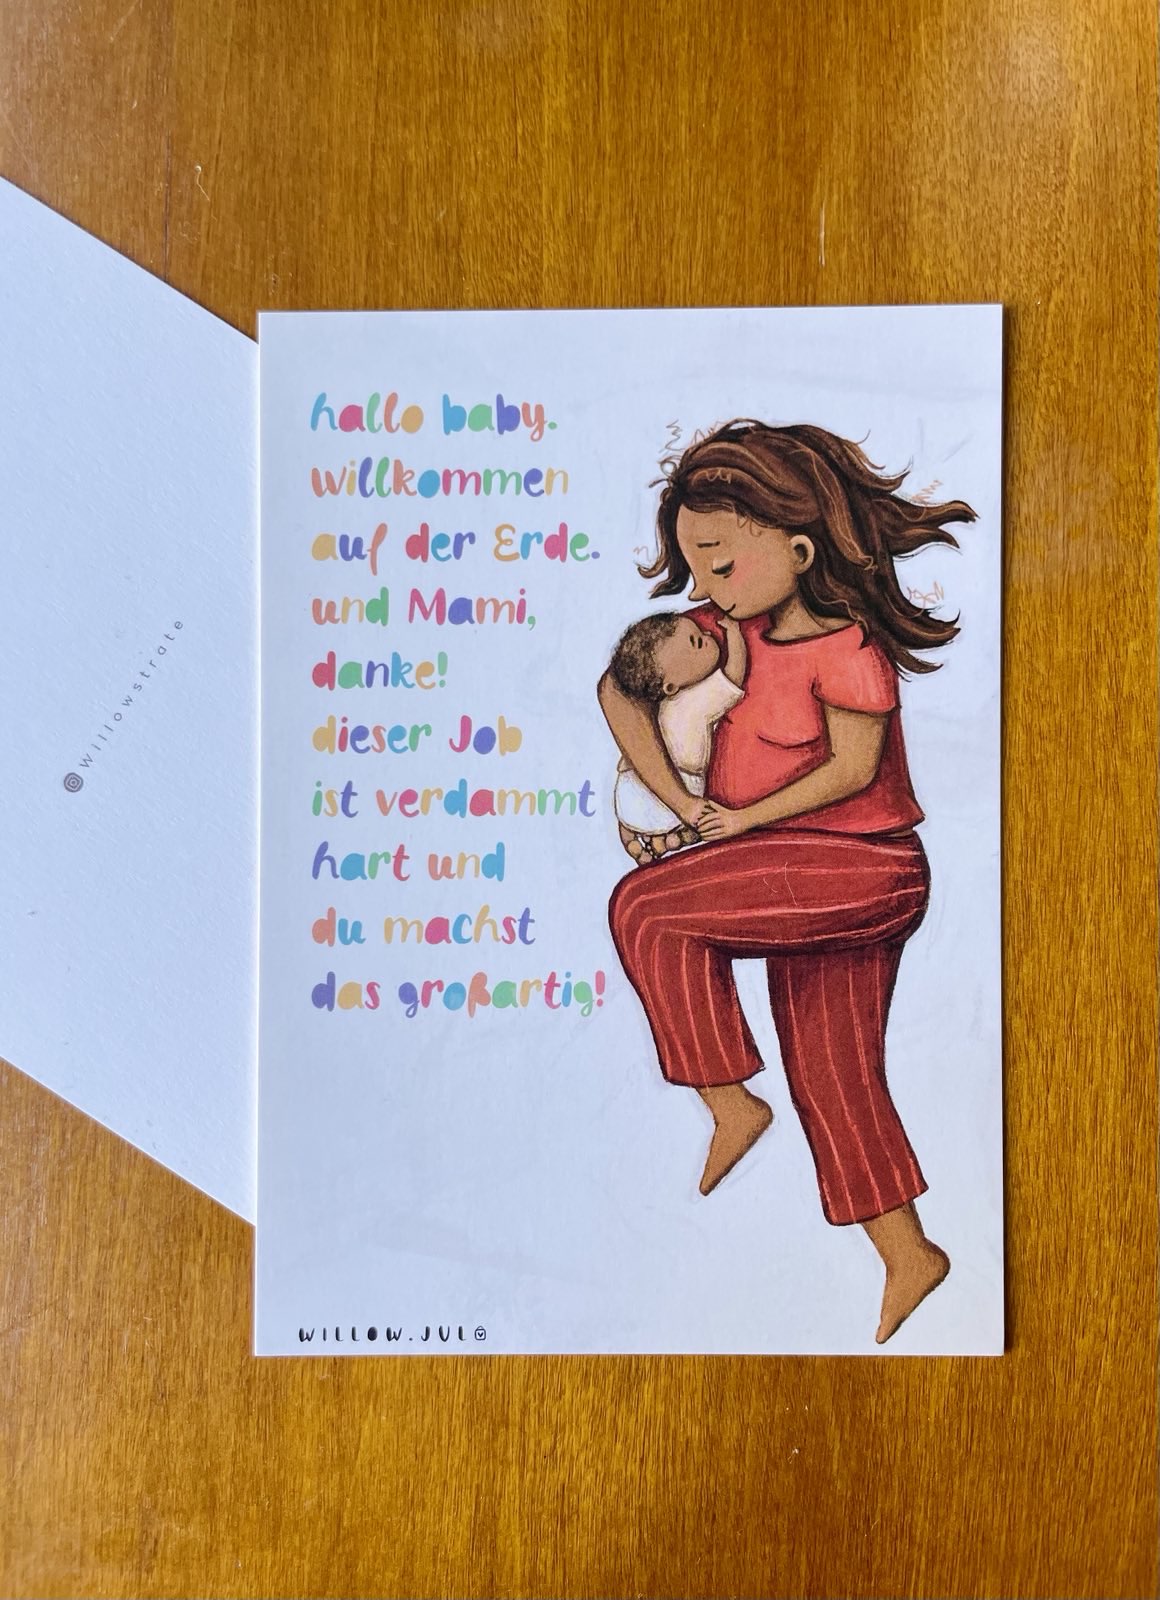 hallo baby.
willkommen
auf der Erde.
und Mami,
danke!
dieser Job
ist verdammt
hart und
du machst
das großartig!
WILLOW.JUL
@willowstrate